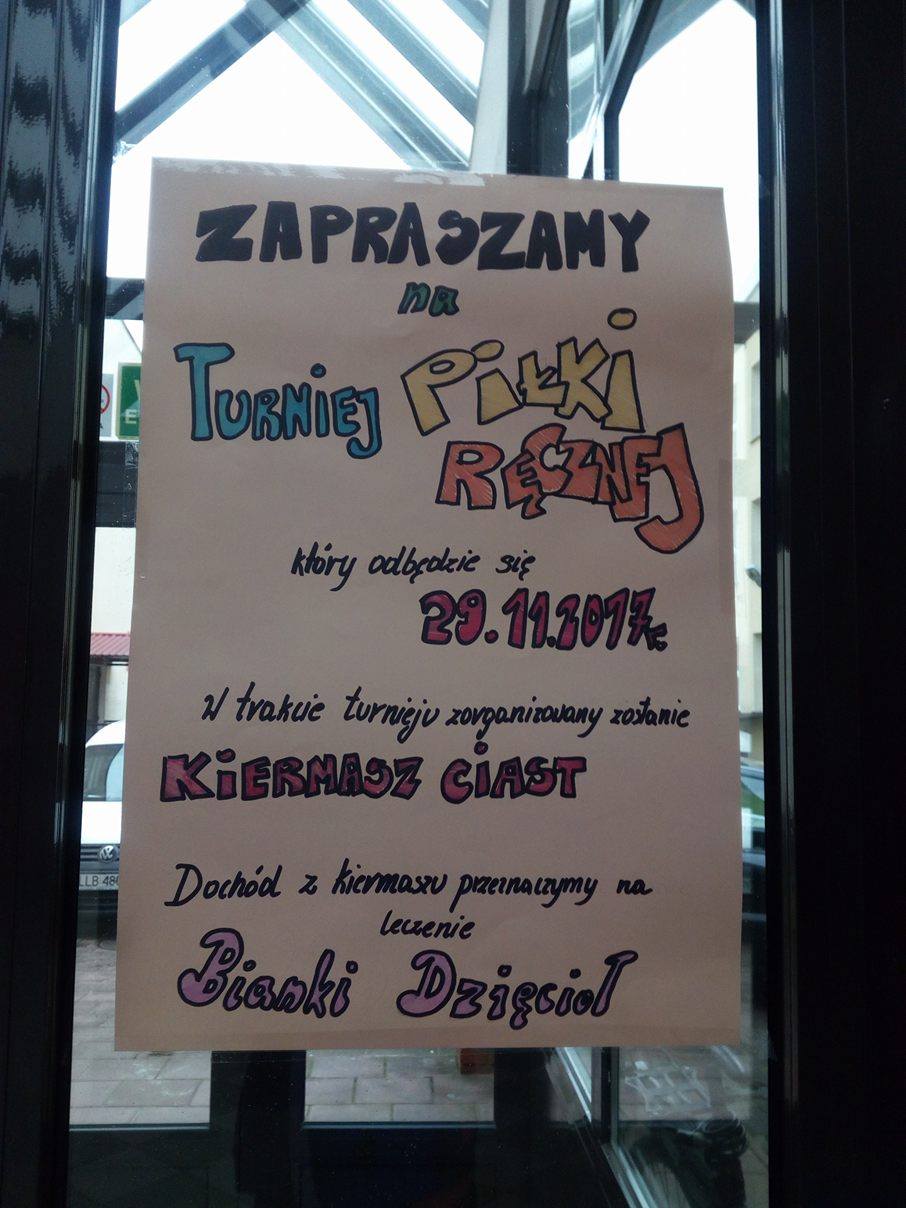 ZAPRASZAMY
na
TURNIEJ PIŁKI
RĘCZNEJ
który odbędzie się
29.11.2017r.
W trakcie turnieju zorganizowany zostanie
KIERMASZ CIAST
Dochód z kiermaszu przeznaczymy na
leczenie
Bianki Dzięcioł
LB 480